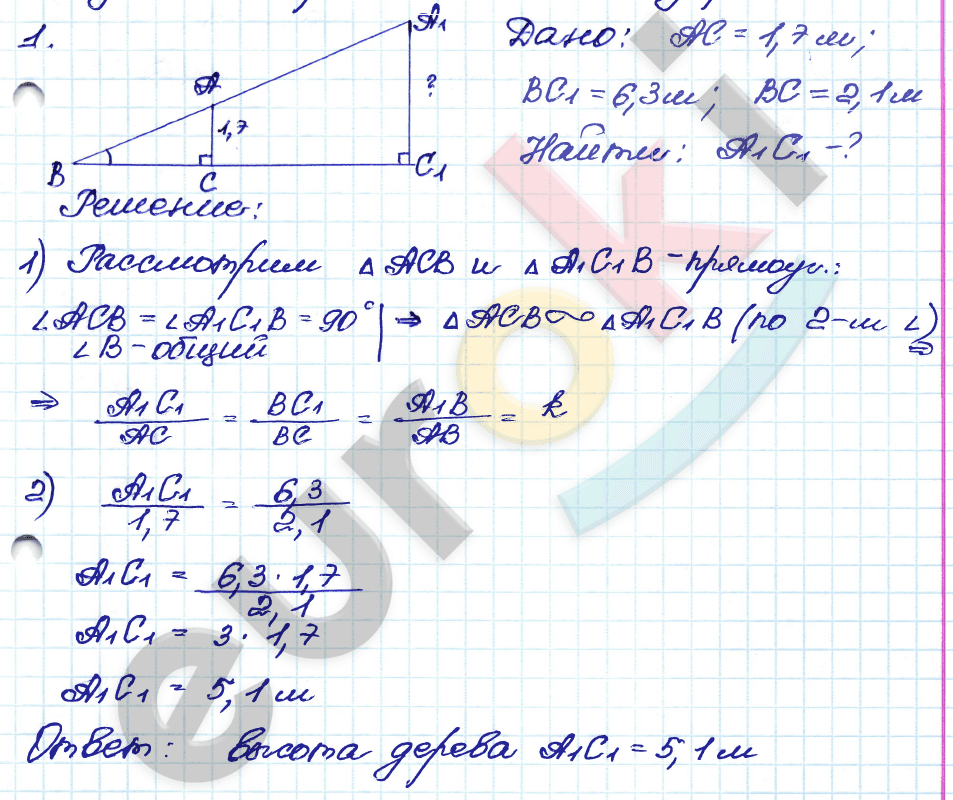 1.
A1
A
?
1,7
B
C
C1
Дано: AC = 1,7 м;
BC1 = 6,3 м; BC = 2,1 м
Найти: A1C1 - ?
Решение:
1) Рассмотрим △ ACB и △ A1C1B - прямоуг.:
∠ACB = ∠A1C1B = 90° | ⇒ △ ACB ∾ △ A1C1B (по 2-м ∠)
∠B - общий
⇒ A1C1/AC = BC1/BC = A1B/AB = k
2) A1C1/1,7 = 6,3/2,1
A1C1 = 6,3 · 1,7/2,1
A1C1 = 3 · 1,7
A1C1 = 5,1 м
Ответ: высота дерева A1C1 = 5,1 м
euroki